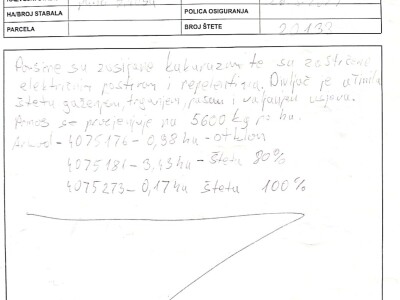 HA/BROJ STABALA
POLICA OSIGURANJA
PARCELA
BROJ ŠTETE
Površine su zasijane kukuruzom te su zaštićene
električnim pastirom i repelentima. Divljač je učinila
štetu gaženjem, i vađenjem usjeva.
Prinos se procjenjuje na 5600 kg po ha.
4075176 - 0,98 ha - otklon
4075181 - 3,43 ha - šteta 80%
4075273 - 0,17 ha šteta 100%